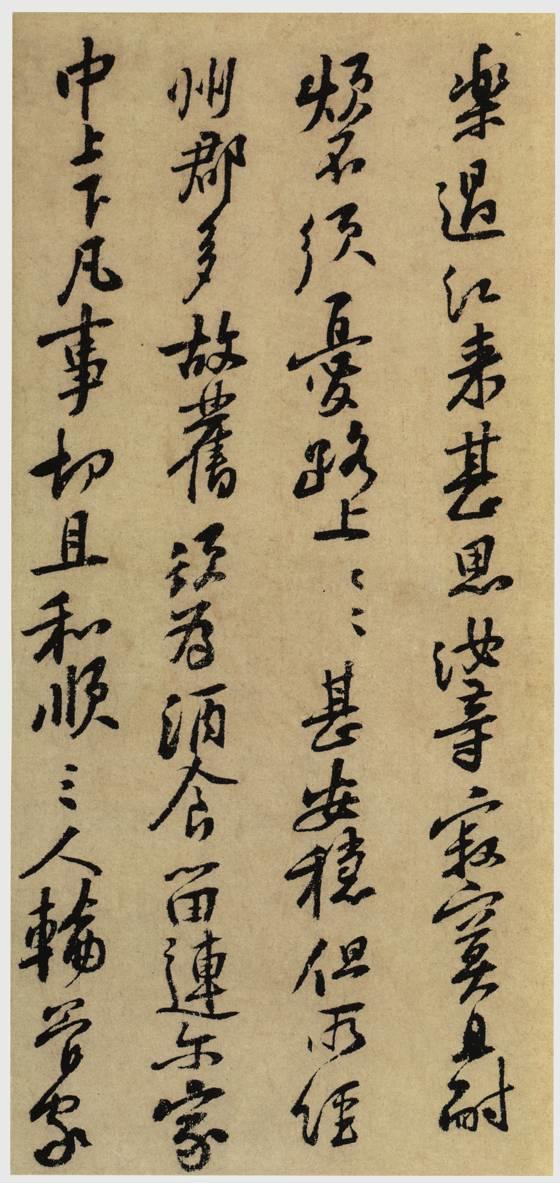 樂過江来甚思汝等寂寞且耐
煩不須憂路上〻〻甚安穩但所經
州郡多故舊須為酒食留連尔家
中上下凡事切且和順三人輪管家